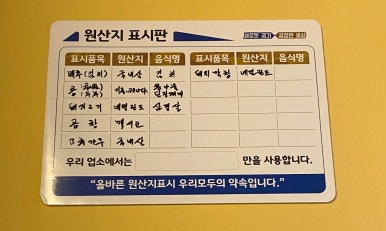 원산지 표시판
표시품목 원산지 음식명 표시품목 원산지 음식명
배추(김치) 국내산 김치 돼지막창 네덜란드
콩
돼지고기 네덜란드 삼겹살
곱창 멕시코
고추가루 국내산
우리 업소에서는 만을 사용합니다.
"올바른 원산지표시 우리모두의 약속입니다."